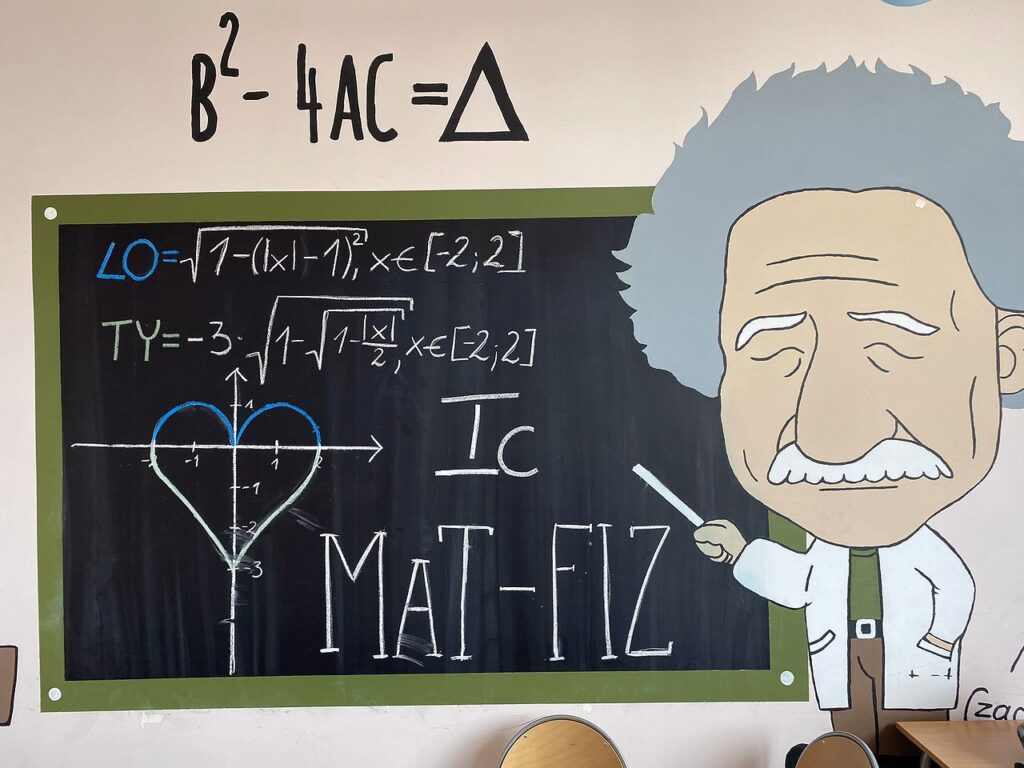 B² - 4AC = Δ
LO = √(1-(|x|-1)²), x∈[-2;2]
TY = -3·√(1-√(1-|x|/2)), x∈[-2;2]
1
-1
1
-1
-2
3
Ic
MAT-FIZ
(zac